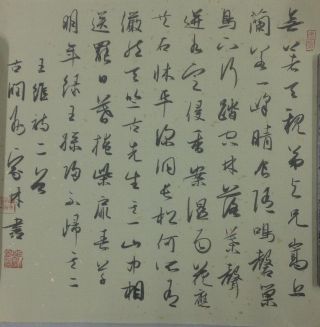 无著天親弟与兄嵩丘
蘭若一峰晴食隨鳴磬巢
烏下行踏空林落葉聲
迸水定侵香案濕雨花應
共石床平深洞長松何所有
儼然天竺古先生之一山中相
送罷日暮掩柴扉春草
明年綠王孫歸不歸之二
王維詩二首
古閩書